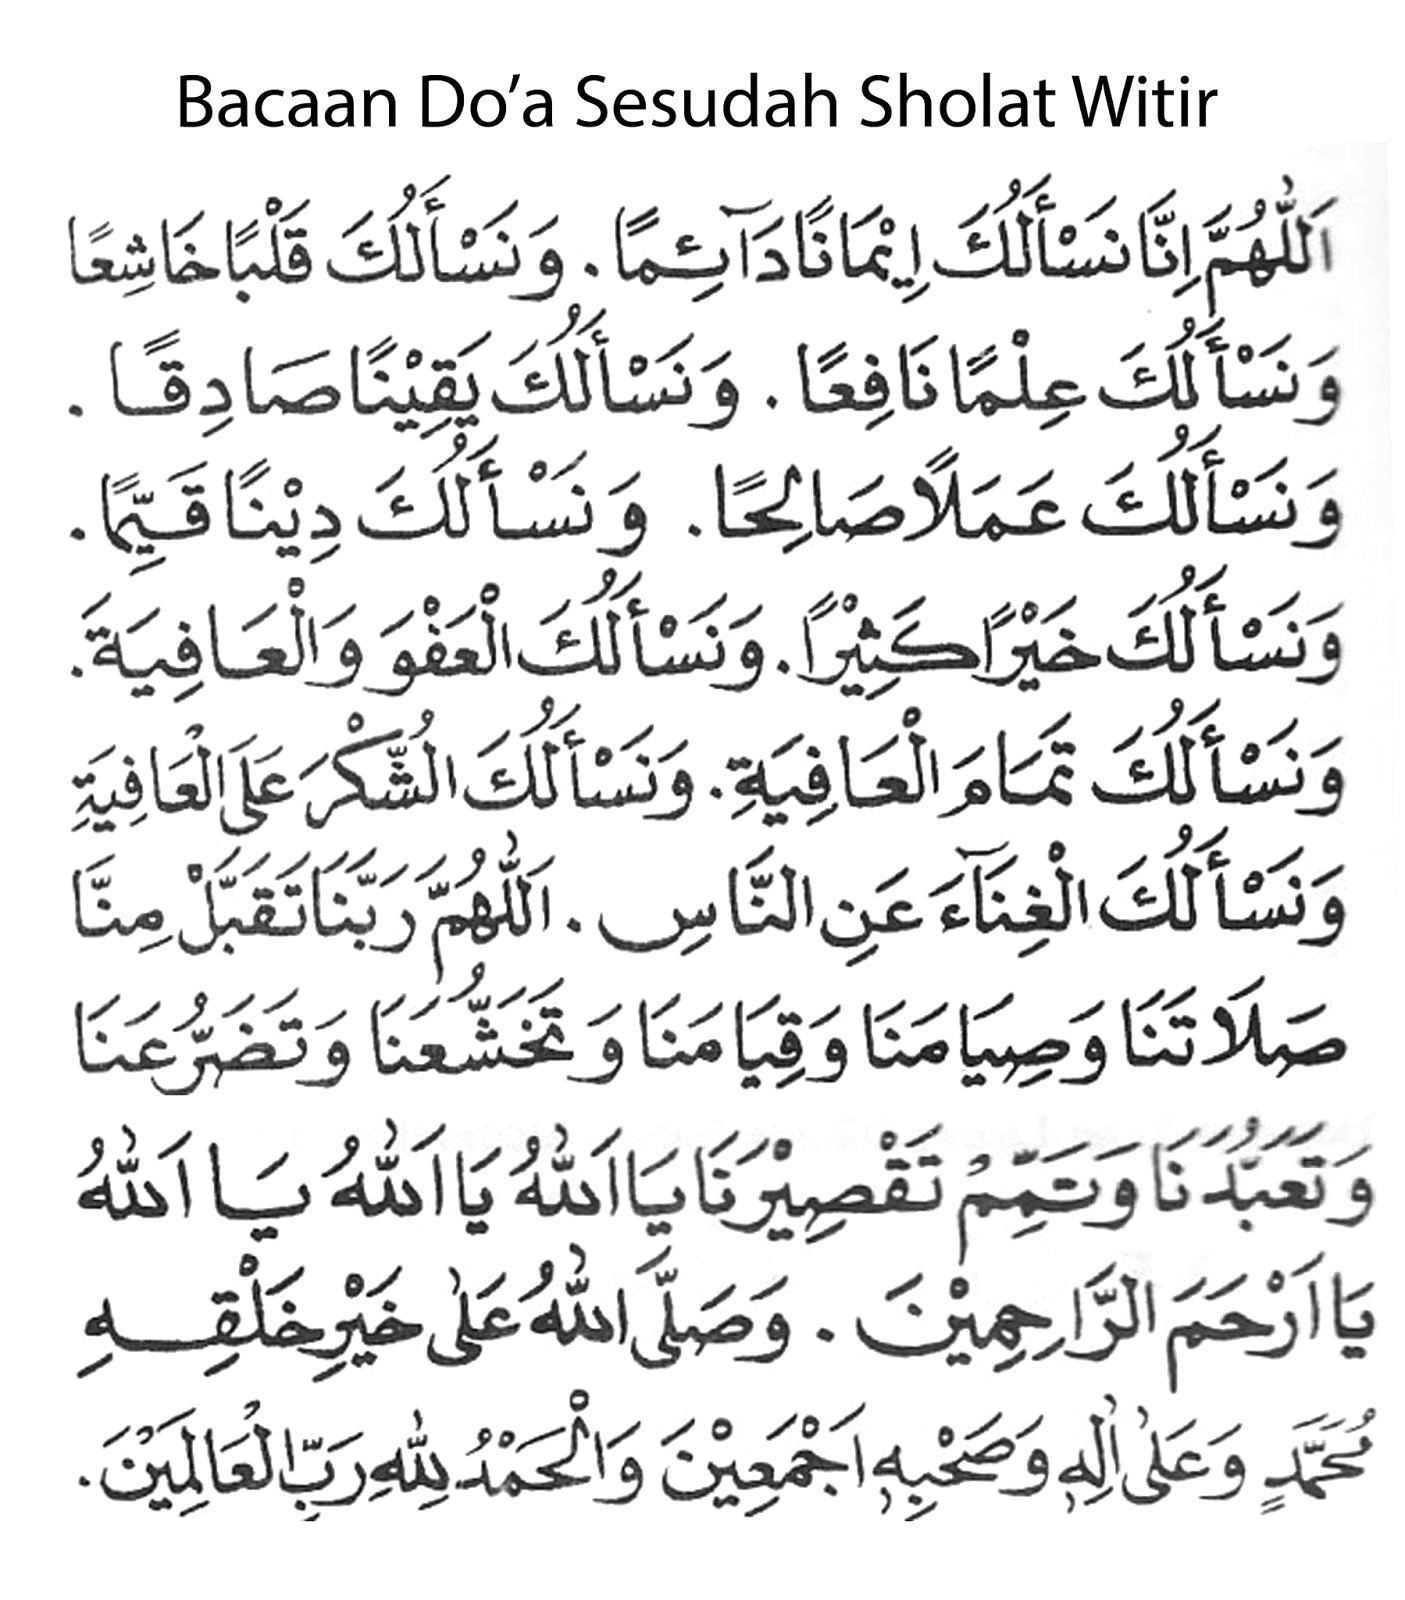 Bacaan Do’a Sesudah Sholat Witir
اَللّٰهُمَّ اِنَّا نَسْأَلُكَ اِيْمَانًا دَآئِمًا. وَنَسْأَلُكَ قَلْبًا خَاشِعًا
وَنَسْأَلُكَ عِلْمًا نَافِعًا. وَنَسْأَلُكَ يَقِيْنًا صَادِقًا.
وَنَسْأَلُكَ عَمَلًا صَالِحًا. وَنَسْأَلُكَ دِيْنًا قَيِّمًا.
وَنَسْأَلُكَ خَيْرًا كَثِيْرًا. وَنَسْأَلُكَ الْعَفْوَ وَالْعَافِيَةَ.
وَنَسْأَلُكَ تَمَامَ الْعَافِيَةِ. وَنَسْأَلُكَ الشُّكْرَ عَلَى الْعَافِيَةِ
وَنَسْأَلُكَ الْغِنَآءَ عَنِ النَّاسِ. اَللّٰهُمَّ رَبَّنَا تَقَبَّلْ مِنَّا
صَلَاتَنَا وَصِيَامَنَا وَقِيَامَنَا وَتَخَشُّعَنَا وَتَضَرُّعَنَا
وَتَعَبُّدَنَا وَتَمِّمْ تَقْصِيْرَنَا يَا اَللّٰهُ يَا اَللّٰهُ يَا اَللّٰهُ
يَا اَرْحَمَ الرَّاحِمِيْنَ. وَصَلَّى اللّٰهُ عَلٰى خَيْرِ خَلْقِهِ
مُحَمَّدٍ وَعَلٰى اٰلِهٖ وَصَحْبِهٖ اَجْمَعِيْنَ وَالْحَمْدُ لِلّٰهِ رَبِّ الْعَالَمِيْنَ.